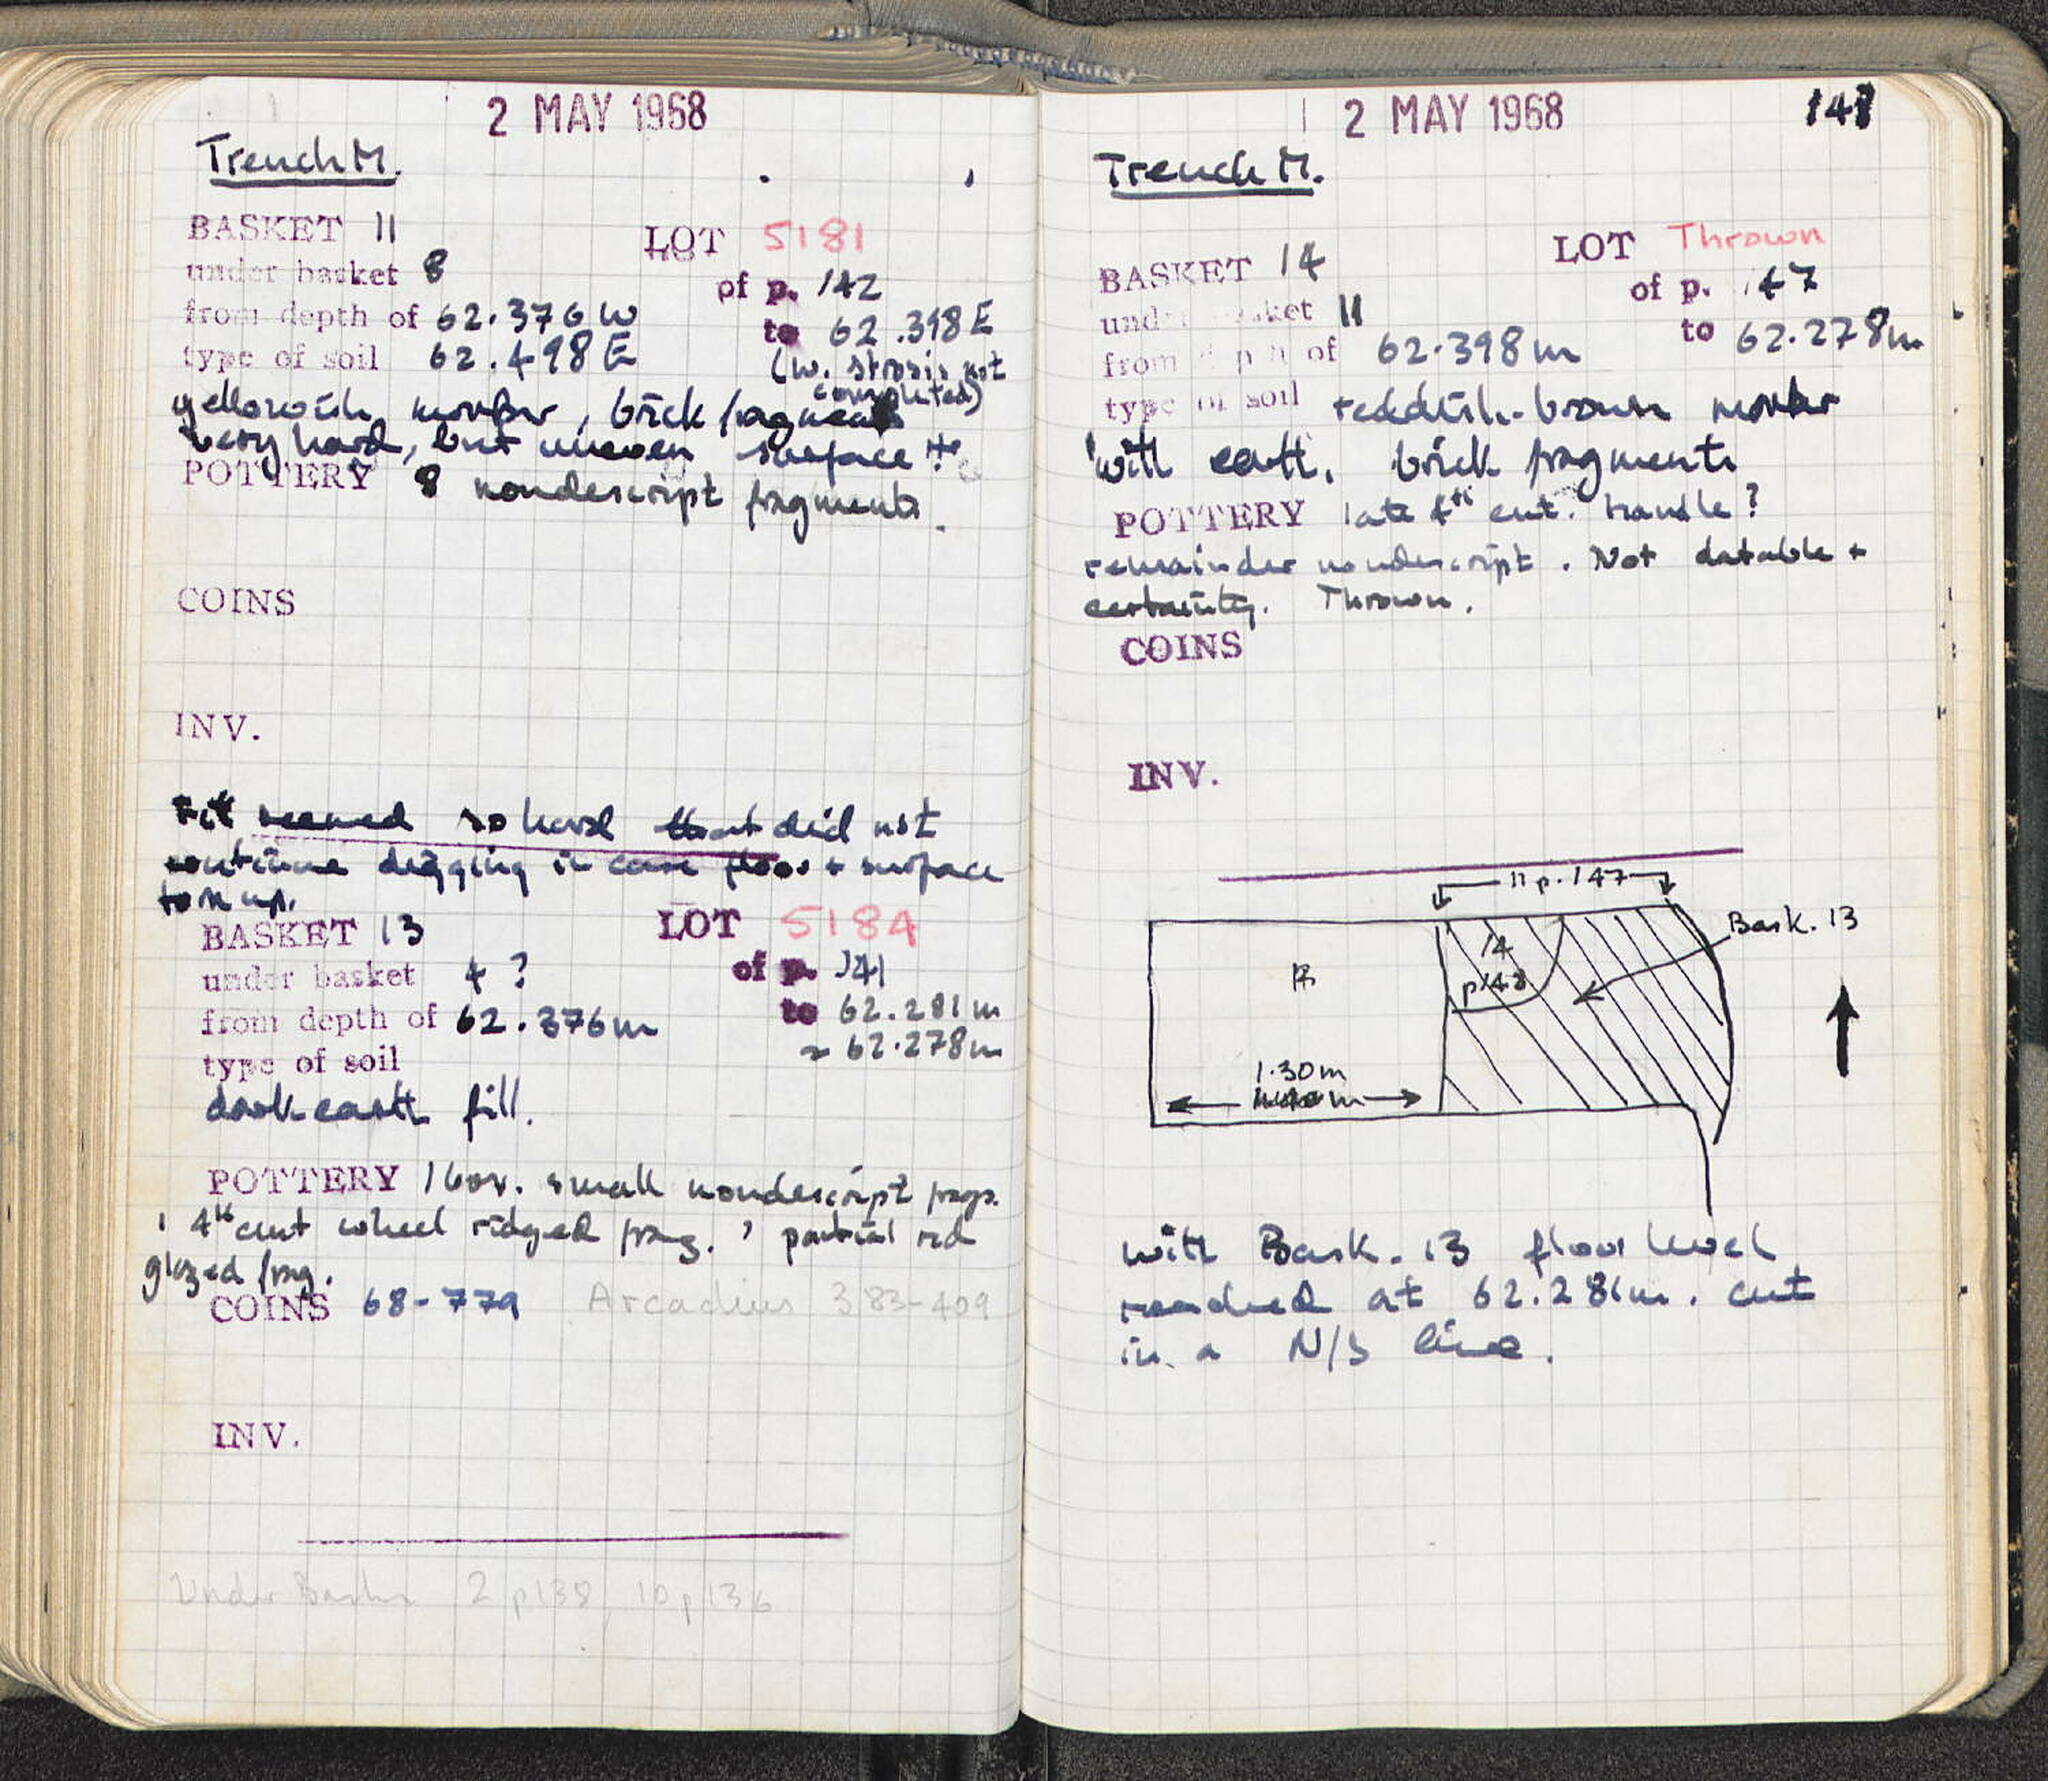 2 MAY 1968
Trench M.
BASKET 11
LOT 5181
under basket 8
of p. 142
from depth of 62.376 W
to 62.398 E
type of soil 62.498 E
(W. strosis not
completed)
yellowish mortar, brick fragments
very hard, but uneven surface
POTTERY 8 nondescript fragments.
COINS
INV.
it seemed so hard that did not
continue digging in case floor + surface
torn up.
BASKET 13
LOT 5184
under basket 4?
of p. 141
from depth of 62.376m
to 62.281m
62.278m
type of soil
dark earth fill.
POTTERY 1 small nondescript frags.
1 4th cent wheel ridged frag. partial red
glazed frag.
COINS 68-779 Arcadius 383-409
INV.
Under Basket 2 p138, 10 p136
2 MAY 1968
Trench M.
LOT Thrown
BASKET 14
of p. 147
under basket 11
to 62.278m
from depth of 62.398m
type of soil reddish-brown mortar
with earth, brick fragments
POTTERY late 4th cent. handle?
remainder nondescript. Not datable +
certainty. Thrown.
COINS
INV.
11 p. 147
Bask. 13
14
p148
1.30m
with Bask. 13 floor level
reached at 62.281m. cut
in a N/S line.